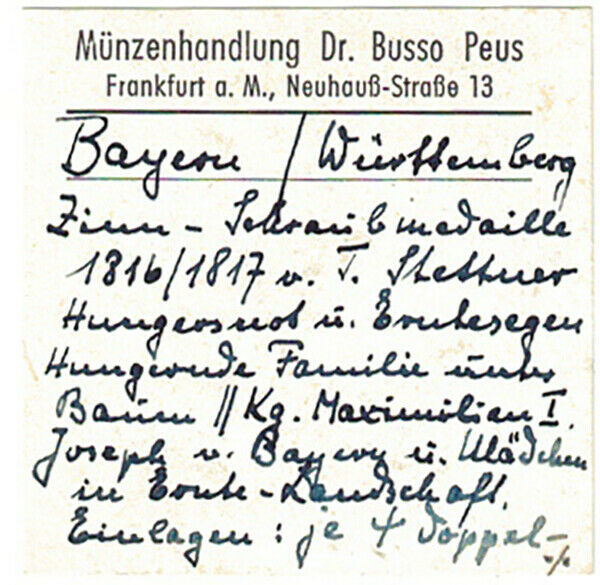 Münzenhandlung Dr. Busso Peus
Frankfurt a. M., Neuhauß-Straße 13
Bayern / Württemberg
Zinn - Schraubmedaille
1816/1817 v. T. Stettner
Hungersnot u. Erntesegen
Hungernde Familie unter
Baum // Kg. Maximilian I.
Joseph v. Bayern u. Mädchen
in Ernte-Landschaft.
Einlagen : je 4 doppel-
./.